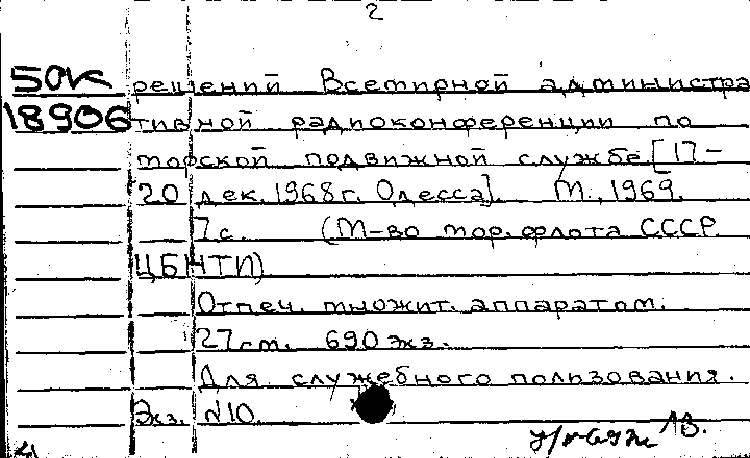 2
50К решений Всемирной администра
18906 тивной радиоконференции по
морской подвижной службе. [17-
20 дек. 1968 г. Одесса]. М., 1969.
7 с. (М-во мор. флота СССР.
ЦБНТИ)
Отпеч. множит. аппаратом.
27 см. 690 экз.
Для служебного пользования.
Экз. №10.